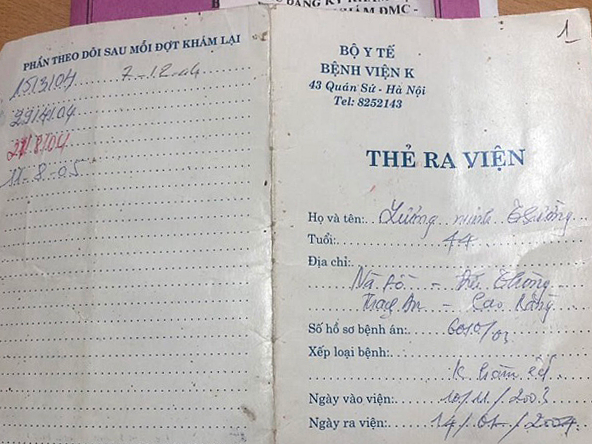 ĐĂNG KÝ KHÁM
KHÁM DMC -
PHẦN THEO DÕI SAU MỖI ĐỢT KHÁM LẠI
15/3/04 7-12-04
29/4/04
27/8/04
11-8-05
1
BỘ Y TẾ
BỆNH VIỆN K
43 Quán Sứ - Hà Nội
Tel: 8252143
THẺ RA VIỆN
Họ và tên: Lương minh
Tuổi: 44
Địa chỉ:
Thông
- Cao Bằng
Số hồ sơ bệnh án: /03
Xếp loại bệnh:
K
Ngày vào viện: 10/11/2003
Ngày ra viện: 14/01/2004